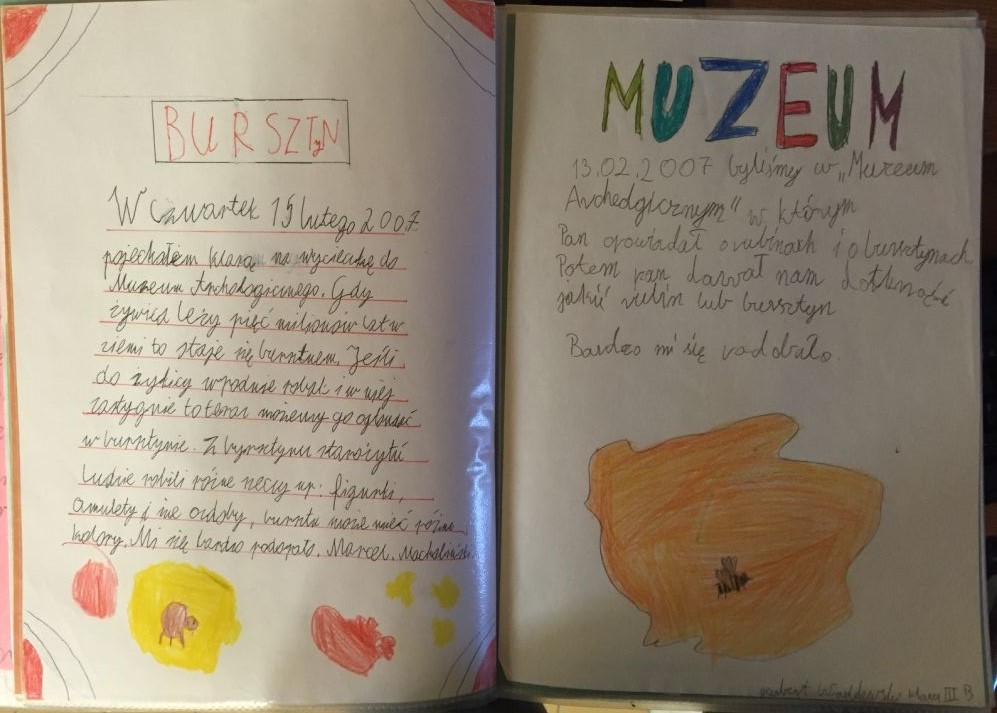 BURSZTyN
W Czwartek 15 lutego 2007
pojechałem klasą na wycieczkę do
Muzeum Archologicznego. Gdy
żywica leży pięć milionów lat w
ziemi to staje się
Jeśli
do żywicy wpadnie robak i w niej
zastygnie to teraz możemy go oglondać
w bursztynie. Z bursztynu starożytń
ludzie robili różne rzeczy np: figurki,
amulety i ine ozdoby, burszt może mieć różne
kolory. Mi się bardzo podobało. Marcel.
MUZEUM
13.02.2007 byliśmy w „Muzeum
w którym
Pan opowiadał o rubinach i o bursztynach
Potem pan dawał nam
jakiś rubin lub bursztyn
Bardzo mi się
klasa III B